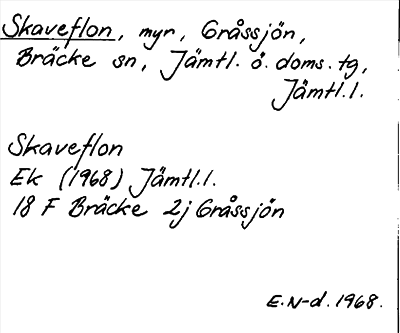 Skaveflon, myr, Gråssjön,
Bräcke sn, Jämtl. ö. doms. tg,
Jämtl.l.
Skaveflon
Ek (1968) Jämtl.l.
18 F Bräcke 2j Gråssjön
E.N-d. 1968.